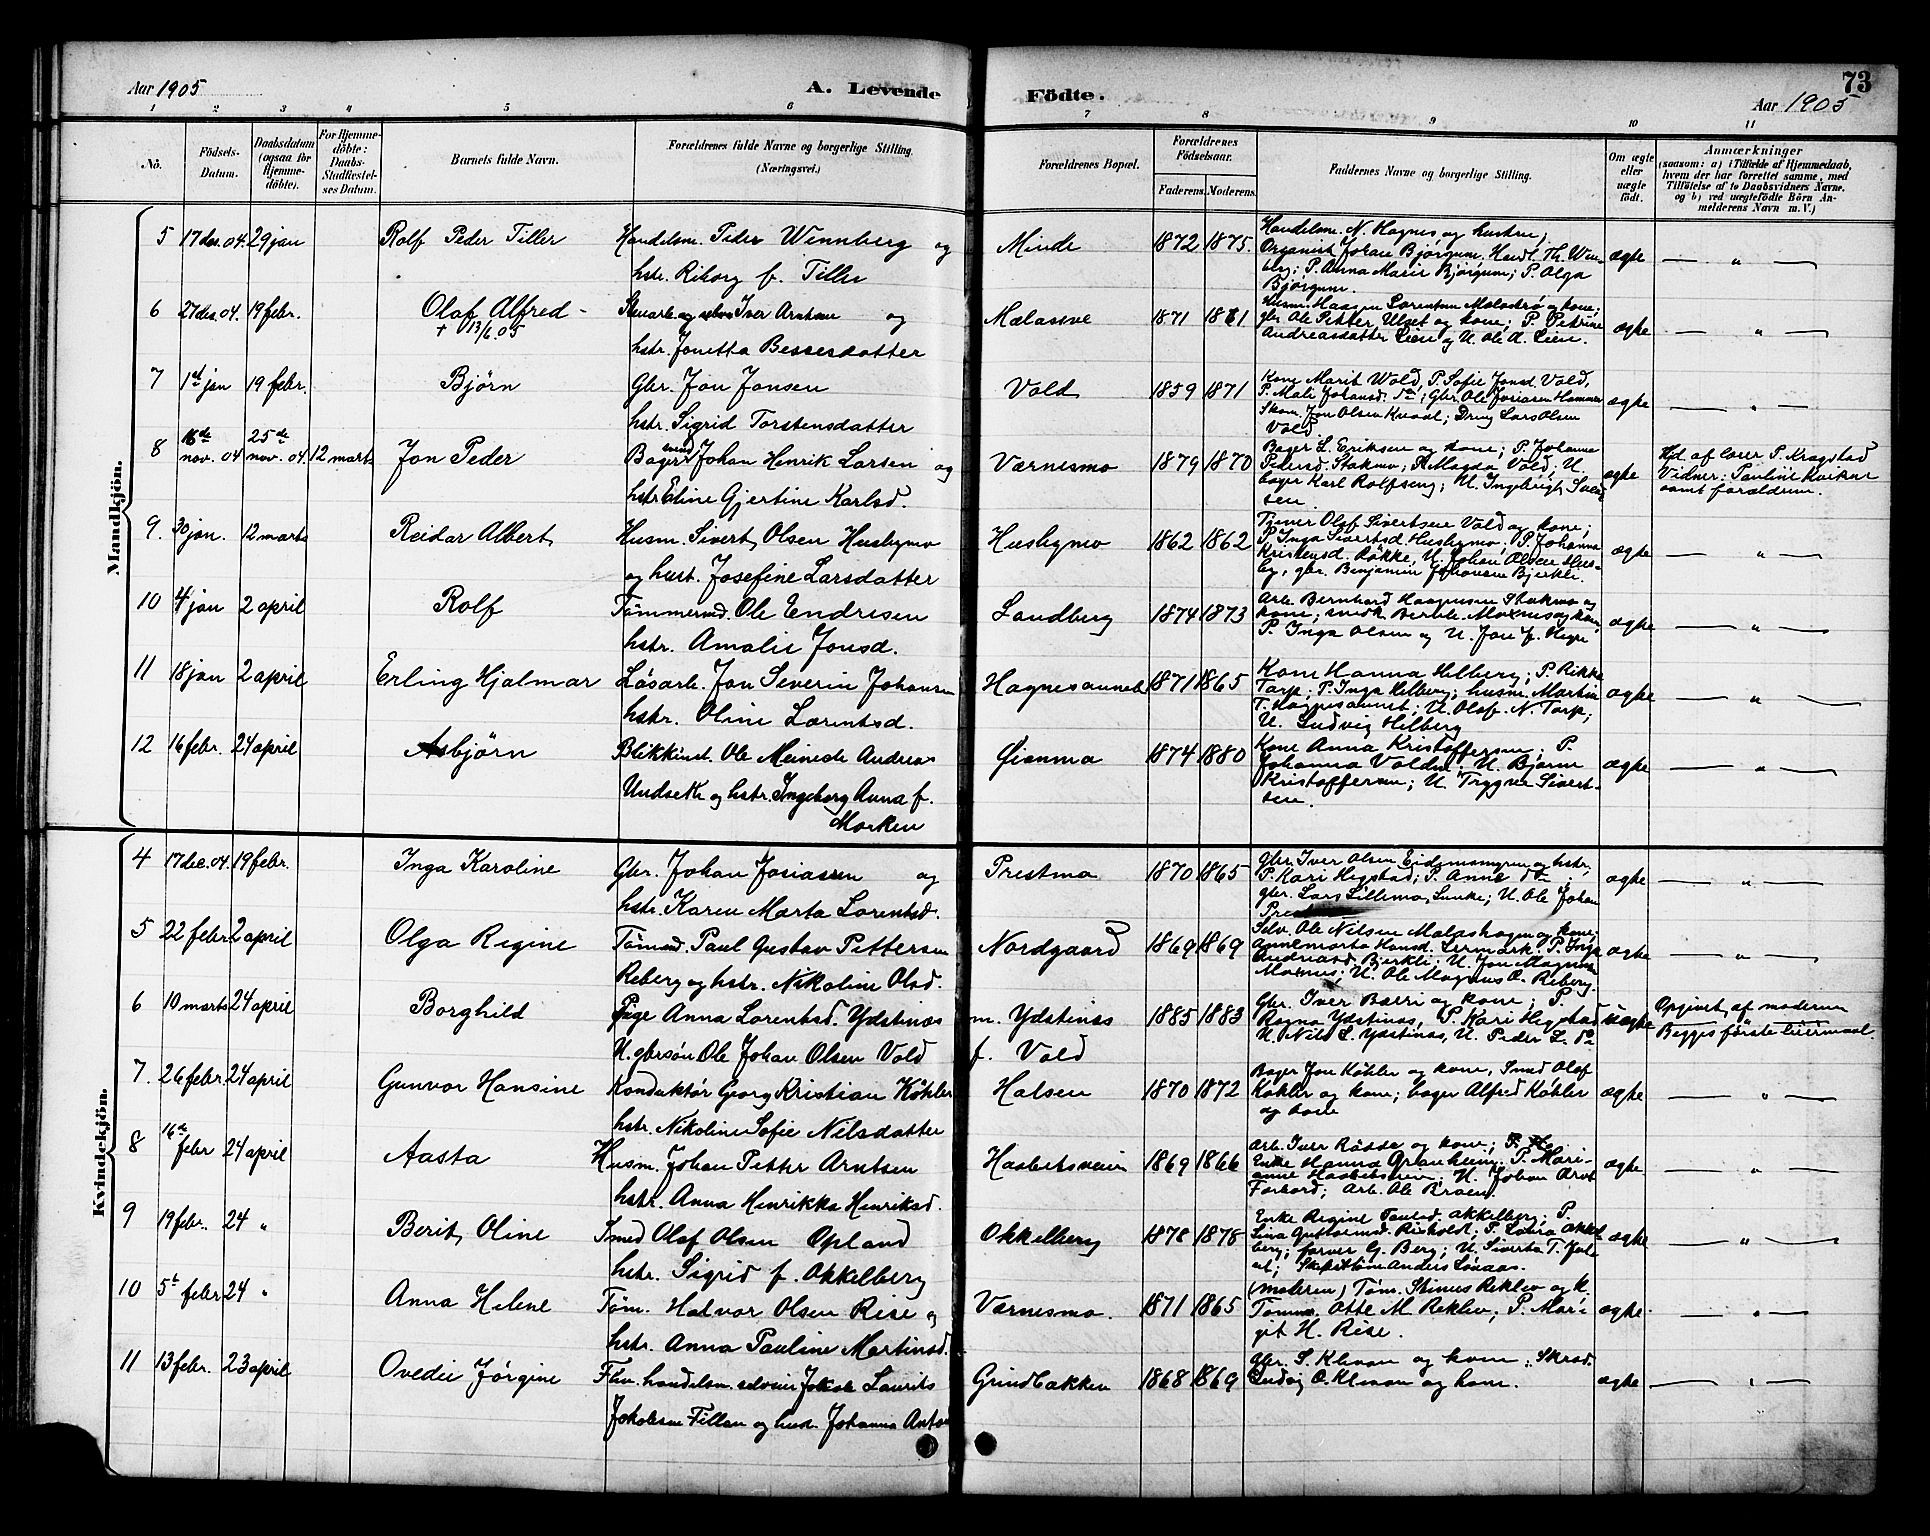 Aar 1905
A. Levende
Födte.
73
Aar 1905
1 2 3 4 5 6 7 8 9 10 11
No.
Födsels-
Datum.
Daabsdatum
(ogsaa for
Hjemme-
döbte).
For Hjemme-
döbte:
Daabs-
Stadfæstel-
ses Datum.
Barnets fulde Navn.
Forældrenes fulde Navne og borgerlige Stilling.
(Næringsvei.)
Forældrenes Bopæl.
Forældrenes
Födselsaar.
Faderens. Moderens.
Faddernes Navne og borgerlige Stilling.
Om ægte
eller
uægte
födt.
Anmærkninger
(saasom: a) i Tilfælde af Hjemmedaab,
hvem der har forrettet samme, med
Tilföielse af to Daabsvidners Navne,
og b) ved uægtefödte Börn An-
melderens Navn m. V.)
Mandkjön.
5 17 des. 04. 29 jan Rolf Peder Tiller Handelsm. Peder Wennberg og
hstr. Riborg f. Tiller
Minde 1872 1875.
Handelsm. N. Hognes og hustru;
Organist Johan Bjørgum. Handl. Th. Wen-
berg; P. Anna Marie Bjørgum; P. Olga
Bjørgum.
ægte — " —
6 27 des. 04. 19 febr. Olaf Alfred -
+ 13/6.05
Iver Arntsen og
hstr. Jonetta Bessesdatter
1871
og kone;
gbr. Ole Petter Ulset og kone; P. Petrine
Andreasdatter Lien og U. Ole A. Lien.
ægte — " —
7 1ste jan 19 febr. Björn Gbr. Jon Jonsen
hstr. Sigrid Torstensdatter
Vold 1859 1871
Kone Marit Wold, P. Sofie Jonsd. Vold,
P. Mali Johansd. do; Gbr. Ole Josiassen Hammer
Skom. Jon Olsen Kvaal; Dreng Lars Olsen
Vold
ægte — " —
8 16de nov. 04 25de nov. 04. 12 marts Jon Peder Bagersvend Johan Henrik Larsen og
hstr. Eline Gjertine Karlsd.
Værnesmo 1879 1870
Bager L. Eriksen og kone; P. Johanna
Pedersd. Stokmo; P. Magda Vold; U.
bager Karl Rolfseng; U. Ingebrigt Svend
sen.
ægte
Hjd. af lærer P. Kragstad
Vidner: Pauline Kvikne
samt forældrene.
9. 30 jan. 12 marts Reidar Albert Husm. Sivert Olsen Husbymo
og hust. Josefine Larsdatter
Husbymo 1862 1862
Tjener Olof Sivertsen Vold og kone;
P. Inga Sivertsd. Husbymo; P. Johanna
Kristensd. Røkke, U. Johan Olsen Hus-
by, gbr. Benjamin Johansen Bjerkli.
ægte — " —
10 4 jan 2 april Rolf Tømmermd. Ole Endresen
hstr. Amalie Jonsd.
Sandberg 1874 1873
Arb. Bernhard Haagensen Stokmo og
kone;
P. Inga Olsen og U. Jon
ægte — " —
11 18 jan 2 april Erling Hjalmar Løsarb. Jon Severin Johansen
hstr. Oline Lorentsd.
Hognesaunet 1871 1865
Kone Hanna Hilberg; P. Rikke
Torp; P. Inga Hilberg; husm. Martin
T. Hognesaunet; U. Olof N. Torp;
U. Ludvig Hilberg
ægte — " —
12 16 febr. 24 april Asbjörn Blikkensl. Ole Meinede Andreas
Undseth og hstr. Ingeborg Anna f.
Morken
Øianmo 1874 1880
Kone Anna Kristoffersen; P.
Johanna Volden. U. Bjarne
Kristoffersen; U. Trygve Sivert-
sen.
ægte — " —
Kvindekjön.
4 17 dec. 04. 19 febr. Inga Karoline Gbr. Johan Josiassen og
hstr. Karen Marta Lorentsd.
Prestmo 1870 1865
Gbr. Iver Olsen Eidsmomyren og hstr,
P. Kari Hegstad; P. Anna do
gbr. Lars Lillemo, Lunke; U. Ole Johan
Prestmo
ægte — " —
5 22 febr 2 april Olga Regine Tømmd. Paul Gustav Pettersen
Reberg og hstr. Nikoline Olsd.
Nordgaard 1869 1869
Selv. Ole Nilsen Malashagen og kone;
Annemarta Hansd. Leirmark. P. Inga
Andreasd. Bjerkli. U. Jon Magnus
Moxnes; U. Ole Magnus O. Reberg.
ægte — " —
6 10 marts 24 april Borghild Pige Anna Lorentsd. Ydstines
U. gbrsøn Ole Johan Olsen Vold
m. Ydstines
f. Vold
1885 1883
Gbr. Iver Børri og kone; P.
Ragna Ydstines, P. Kari Hegstad
U. Nils L. Ydstines, U. Peder L. do
uægte
Opgivet af moderen
Begges förste leiermaal.
7. 26 febr. 24 april Gunvor Hansine Konduktør Georg Kristian Köhler
hstr. Nikoline Sofie Nilsdatter
Halsen 1870 1872
Bager Jon Köhler og kone, Smed Olaf
Köhler og kone; bager Alfred Köhler
og kone
ægte — " —
8 16de febr 24 april Aasta Husm. Johan Petter Arntsen
hstr. Anna Henrikka Henriksd.
Haabetsveien 1869 1866
Arb. Iver Rödde og kone;
Enke Hanna Granheim; P. Mari-
anne Haabetsveien; U. Johan Arnt
Forbord; Arb. Ole Braen.
ægte — " —
9 19 febr. 24 " Berit Oline Smed Olaf Olsen Opland
hstr. Sigrid f. Okkelberg
Okkelberg 1878 1878
Enke Regine Paulsd. Okkelberg; P.
Lina Gustavsd. Reinholt; P. Laura Okkel
berg; farver G. Berg; U. Siverta T.
Anders Lönaas.
ægte — " —
10 5te febr 24 " Anna Helene Töm. Halvor Olsen Rise og
hstr. Anna Pauline Martinsd.
Værnesmo. 1871 1865
(moderen) Töm. Stinus Reklev og k.
Tømm. Otte M. Reklev; P. Mar-
git H. Rise.
ægte — " —
11 13 febr. 23 april Ovedie Jørgine handelsm. selveier Jakob Laurits
Jakobsen Tillan og hust. Johanna Anto
Grindbakken 1868 1869
Gbr. S. Klevan og kone; Skræd.
Ludvig O. Klevan og kone.
ægte — " —